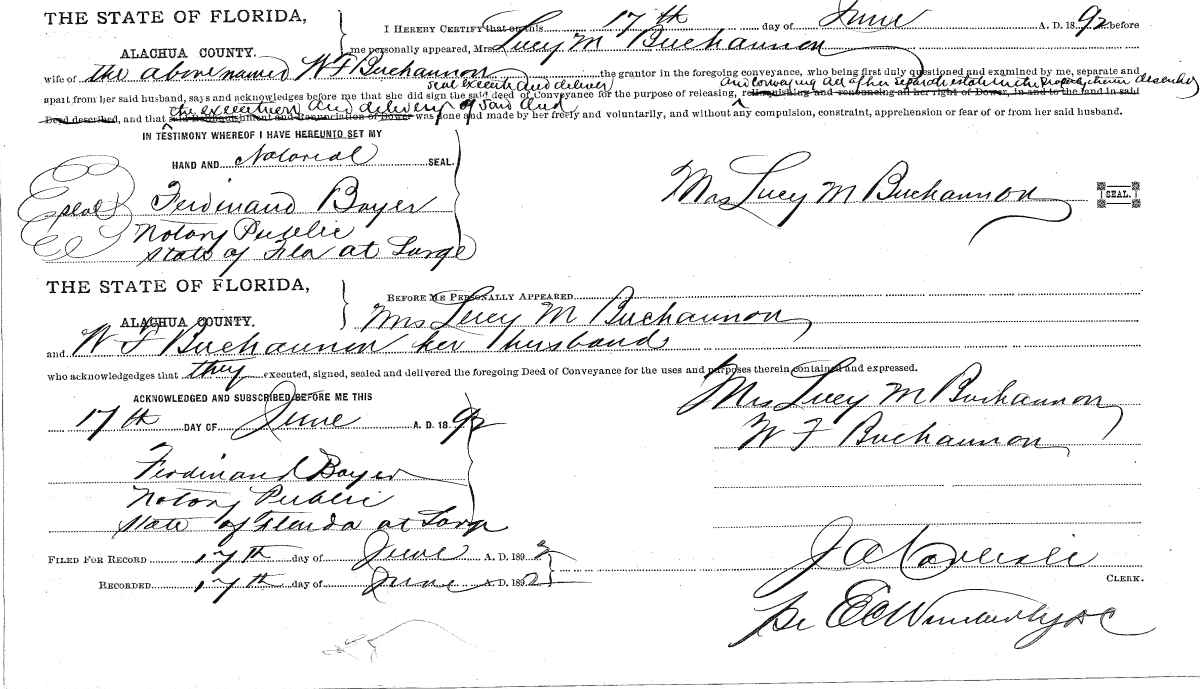 THE STATE OF FLORIDA,
ALACHUA COUNTY.
I HEREBY CERTIFY that on this 17th day of June A. D. 1892 before
me personally appeared, Mrs Lucy M Buchannon
wife of the above named W F Buchannon the grantor in the foregoing conveyance, who being first duly questioned and examined by me, separate and
seal execute and deliver and conveying all of her separate estate in the property therein described
apart from her said husband, says and acknowledges before me that she did sign the said deed of Conveyance for the purpose of releasing, relinquishing and renouncing all her right of Dower, in and to the land in said
the execution and delivery of said deed
Deed described, and that said Relinquishment and Renunciation of Dower was done and made by her freely and voluntarily, and without any compulsion, constraint, apprehension or fear of or from her said husband.
IN TESTIMONY WHEREOF I HAVE HEREUNTO SET MY
HAND AND Notorial SEAL.
Mrs Lucy M Buchannon SEAL.
seal Ferdinand Bayer
Notary Public
State of Fla at Large
THE STATE OF FLORIDA,
ALACHUA COUNTY.
BEFORE ME PERSONALLY APPEARED
Mrs Lucy M Buchannon
and W F Buchannon her husband
who acknowledgedges that they executed, signed, sealed and delivered the foregoing Deed of Conveyance for the uses and purposes therein contained and expressed.
ACKNOWLEDGED AND SUBSCRIBED BEFORE ME THIS
17th DAY OF June A. D. 1892
Mrs Lucy M Buchannon
W F Buchannon
Ferdinand Bayer
Notary Public
State of Florida at Large
FILED FOR RECORD 17th day of June A. D. 1892
RECORDED 17th day of June A. D. 1892
J A Carlisle
CLERK.
pr E C Wimberly DC